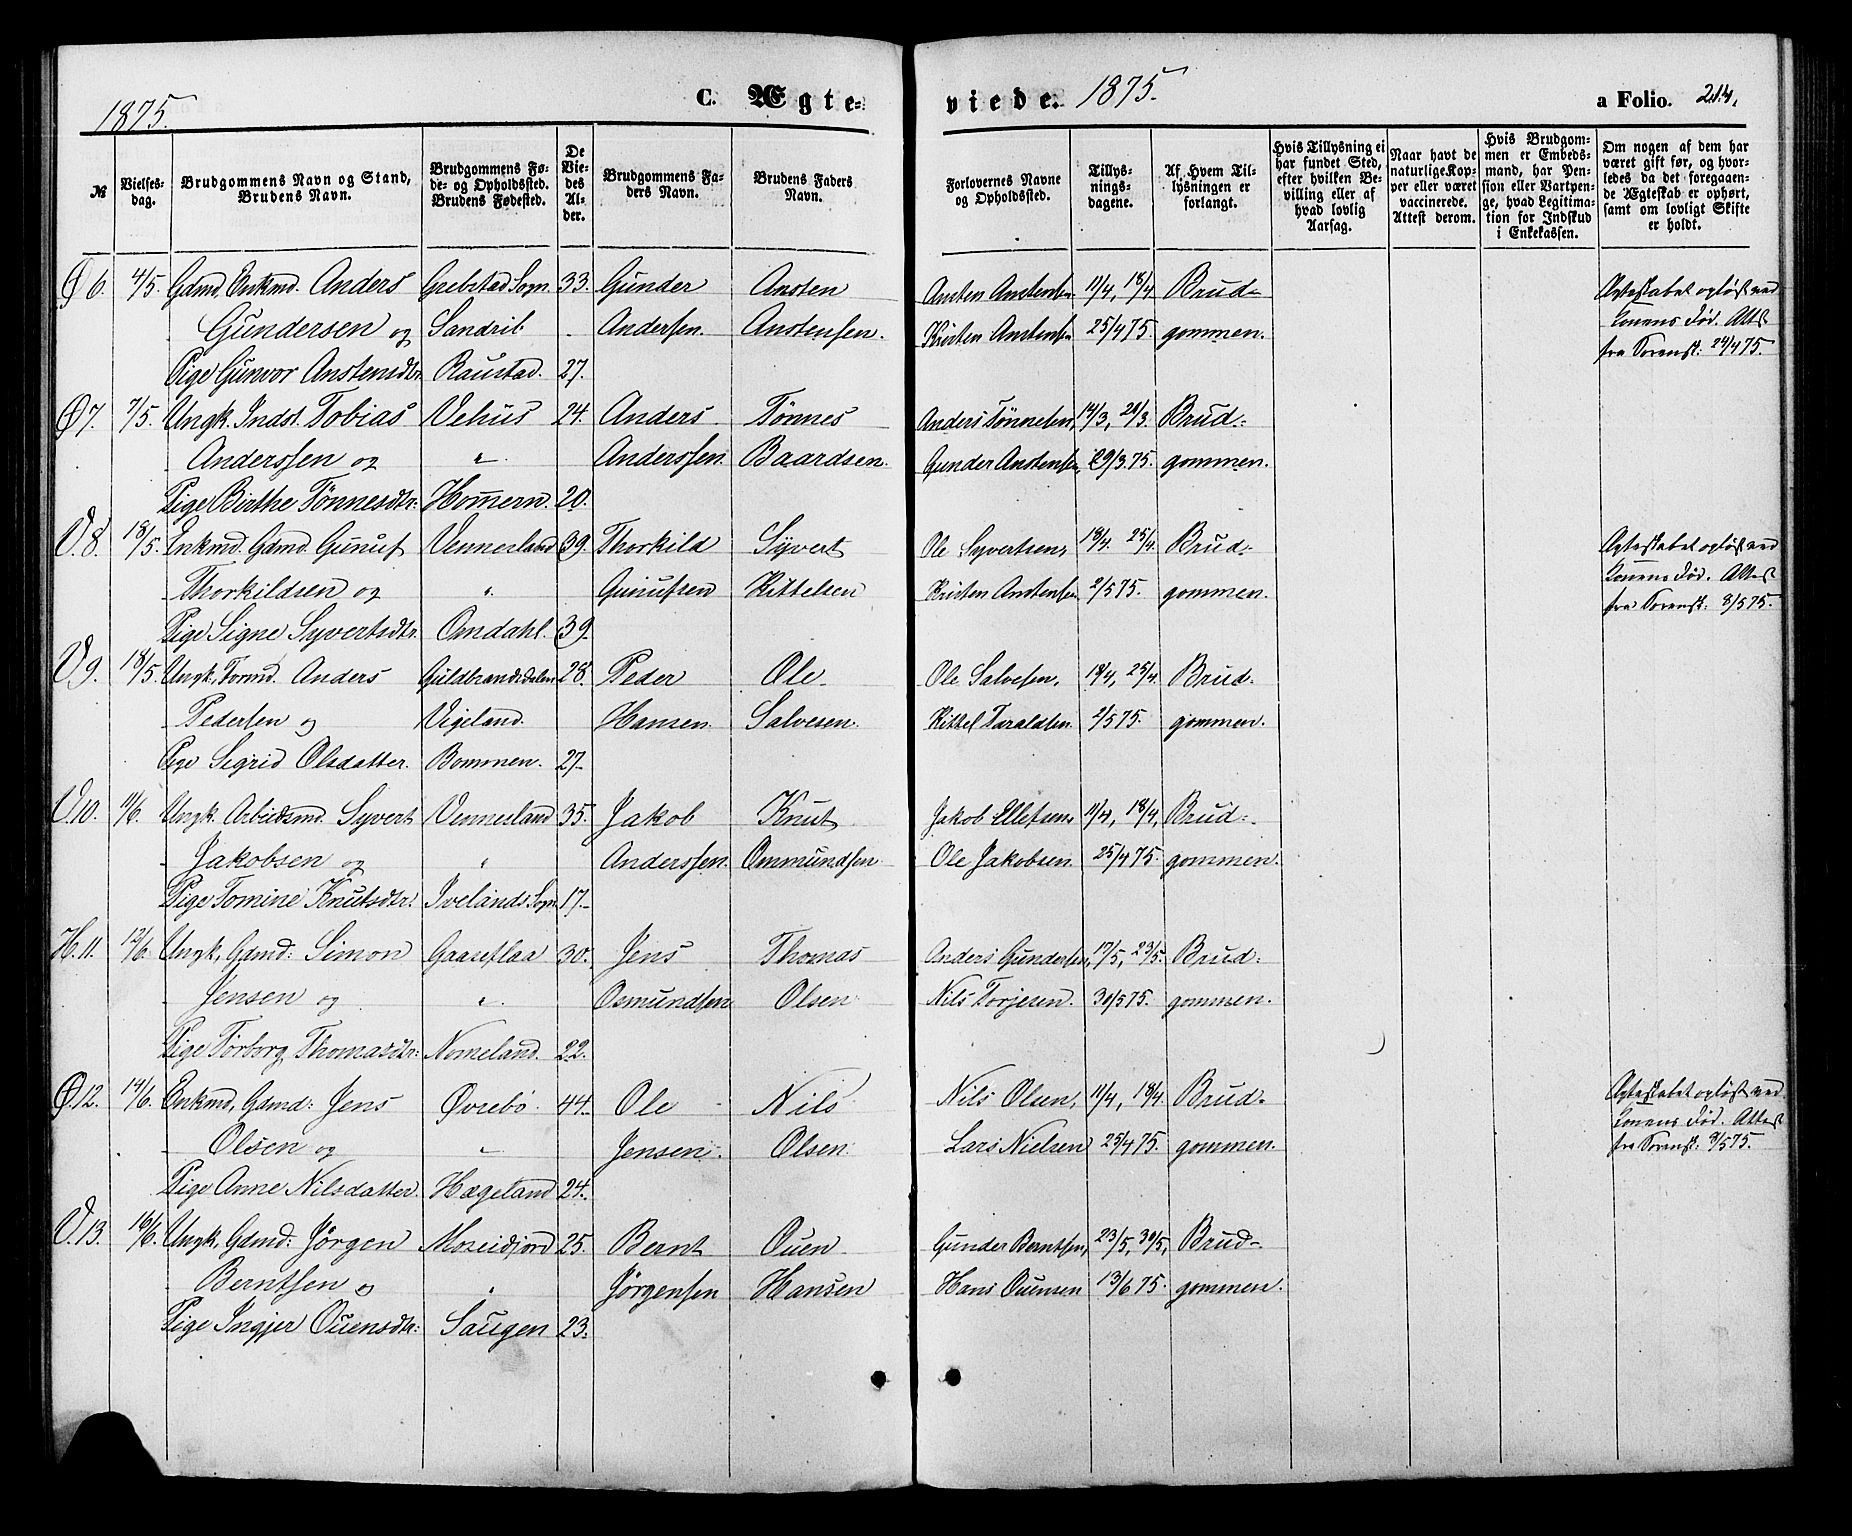 1875. C. Ægte- viede. 1875. a Folio. 214.
№ Vielses-dag. Brudgommens Navn og Stand, Brudens Navn. Brudgommens Fø-de- og Opholdssted. Brudens Fødested. De Vie-des Al-der. Brudgommens Fa-ders Navn. Brudens Faders Navn. Forlovernes Navne og Opholdssted. Tillys-nings-dagene. Af Hvem Til-lysningen er forlangt. Hvis Tillysning ei har fundet Sted, efter hvilken Be-villing eller af hvad lovlig Aarsag. Naar havt de naturlige Kop-per eller været vaccinerede. Attest derom. Hvis Brudgom-men er Embeds-mand, har Pen-sion eller Vartpen-ge, hvad Legitima-tion for Indskud i Enkekassen. Om nogen af dem har været gift før, og hvor-ledes da det foregaaen-de Ægteskab er ophørt, samt om lovligt Skifte er holdt.
Ø 6. 4/5. Gdmd, Enkmd. Anders Grebstad Sogn 33. Gunder Ansten Ansten Anstensen 11/4, 18/4 Brud- Ægteskabet opløst ved
Gundersen og Sandrib Andersen. Anstensen. Kristen Anstensen 25/4 75. gommen. Konens Død. Attest
Pige Gunvor Anstensdtr. Raustad. 27. fra Sorensk: 24/4 75.
Ø 7. 7/5. Ungk. Indst. Tobias Vehus 24. Anders Tønnes Anders Tønnesen, 14/3, 21/3. Brud-
Anderssen og " Anderssen. Baardsen. Gunder Anstensen, 29/3. 75. gommen.
Pige Birthe Tønnesdtr: Homern. 20.
V. 8. 18/5. Enkmd. Gdmd. Gunuf Vennesland 39. Thorkild Syvert Ole Syvertsen, 18/4. 25/4. Brud- Ægteskabet opløst ved
Thorkildsen og " Gunufsen Kittelsen Kristen Anstensen 2/5 75. gommen. Konens Død. Attest
Pige Signe Syvertsdtr. Omdahl. 39. fra Sorensk: 3/5 75.
V 9. 18/5. Ungk, Tomd. Anders Guldbrandsdalen 28. Peder Ole Ole Salvesen, 18/4, 25/4 Brud-
Pedersen og Vigeland. Hansen. Salvesen. Kittel Taraldsen 2/5 75. gommen.
Pige Sigrid Olsdatter. Bommen. 27.
V. 10. 11/6. Ungk. Arbeidsmd. Syvert Vennesland 35. Jakob Knut Jakob Ellefsen 11/4, 18/4, Brud-
Jakobsen og " Anderssen. Ommundsen. Ole Jakobsen 25/4 75. gommen.
Pige Tomine Knutsdtr: Ivelands Sogn 17.
H. 11. 12/6. Ungk, Gdmd: Simon Gaaseflaa 30. Jens Thomas Anders Gundersen, 17/5, 23/5. Brud-
Jensen og " Osmundsen Olsen. Nils Torjesen. 30/5 75. gommen.
Pige Torborg Thomasdtr: Nomeland. 22.
Ø. 12. 14/6. Enkmd, Gdmd: Jens Øvrebø. 44. Ole Nils Nils Olsen, 11/4, 18/4. Brud- Ægteskabet opløst ved
Olsen og " Jensen. Olsen. Lars Nielsen 25/4 75. gommen. Konens Død. Attest
Pige Anne Nilsdatter Hægeland 24. fra Sorensk: 3/5 75.
V. 13. 16/6. Ungk, Gdmd: Jørgen Moseidjord 25. Bernt Ouen Gunder Berntsen, 23/5, 30/5, Brud-
Berntsen og " Jørgensen Hansen Hans Ouensen 13/6 75. gommen.
Pige Ingjer Ouensdtr: Saugen 23.